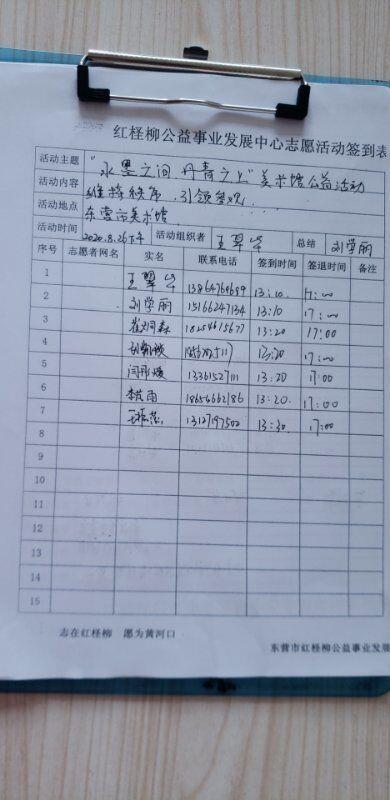 红柽柳公益事业发展中心志愿活动签到表
活动主题 "水墨之间 丹青之上"美术馆公益活动
活动内容 维持秩序、引领参观
活动地点 东营市美术馆
活动时间 2020.8.26下午 活动组织者 王翠 总结 刘学丽
序号 志愿者网名 实名 联系电话 签到时间 签退时间 备注
1 王翠 13864760689 13:10 17:00
2 刘学丽 15166247134 13:10 17:00
3 森 18254615677 13:20 17:00
4 13:20 17:00
5 闫 13361527111 13:20 17:00
6 李 雨 18654662186 13:20 17:00
7 王 13127197502 13:30 17:00
8
9
10
11
12
13
14
15
志在红柽柳 愿为黄河口
东营市红柽柳公益事业发展